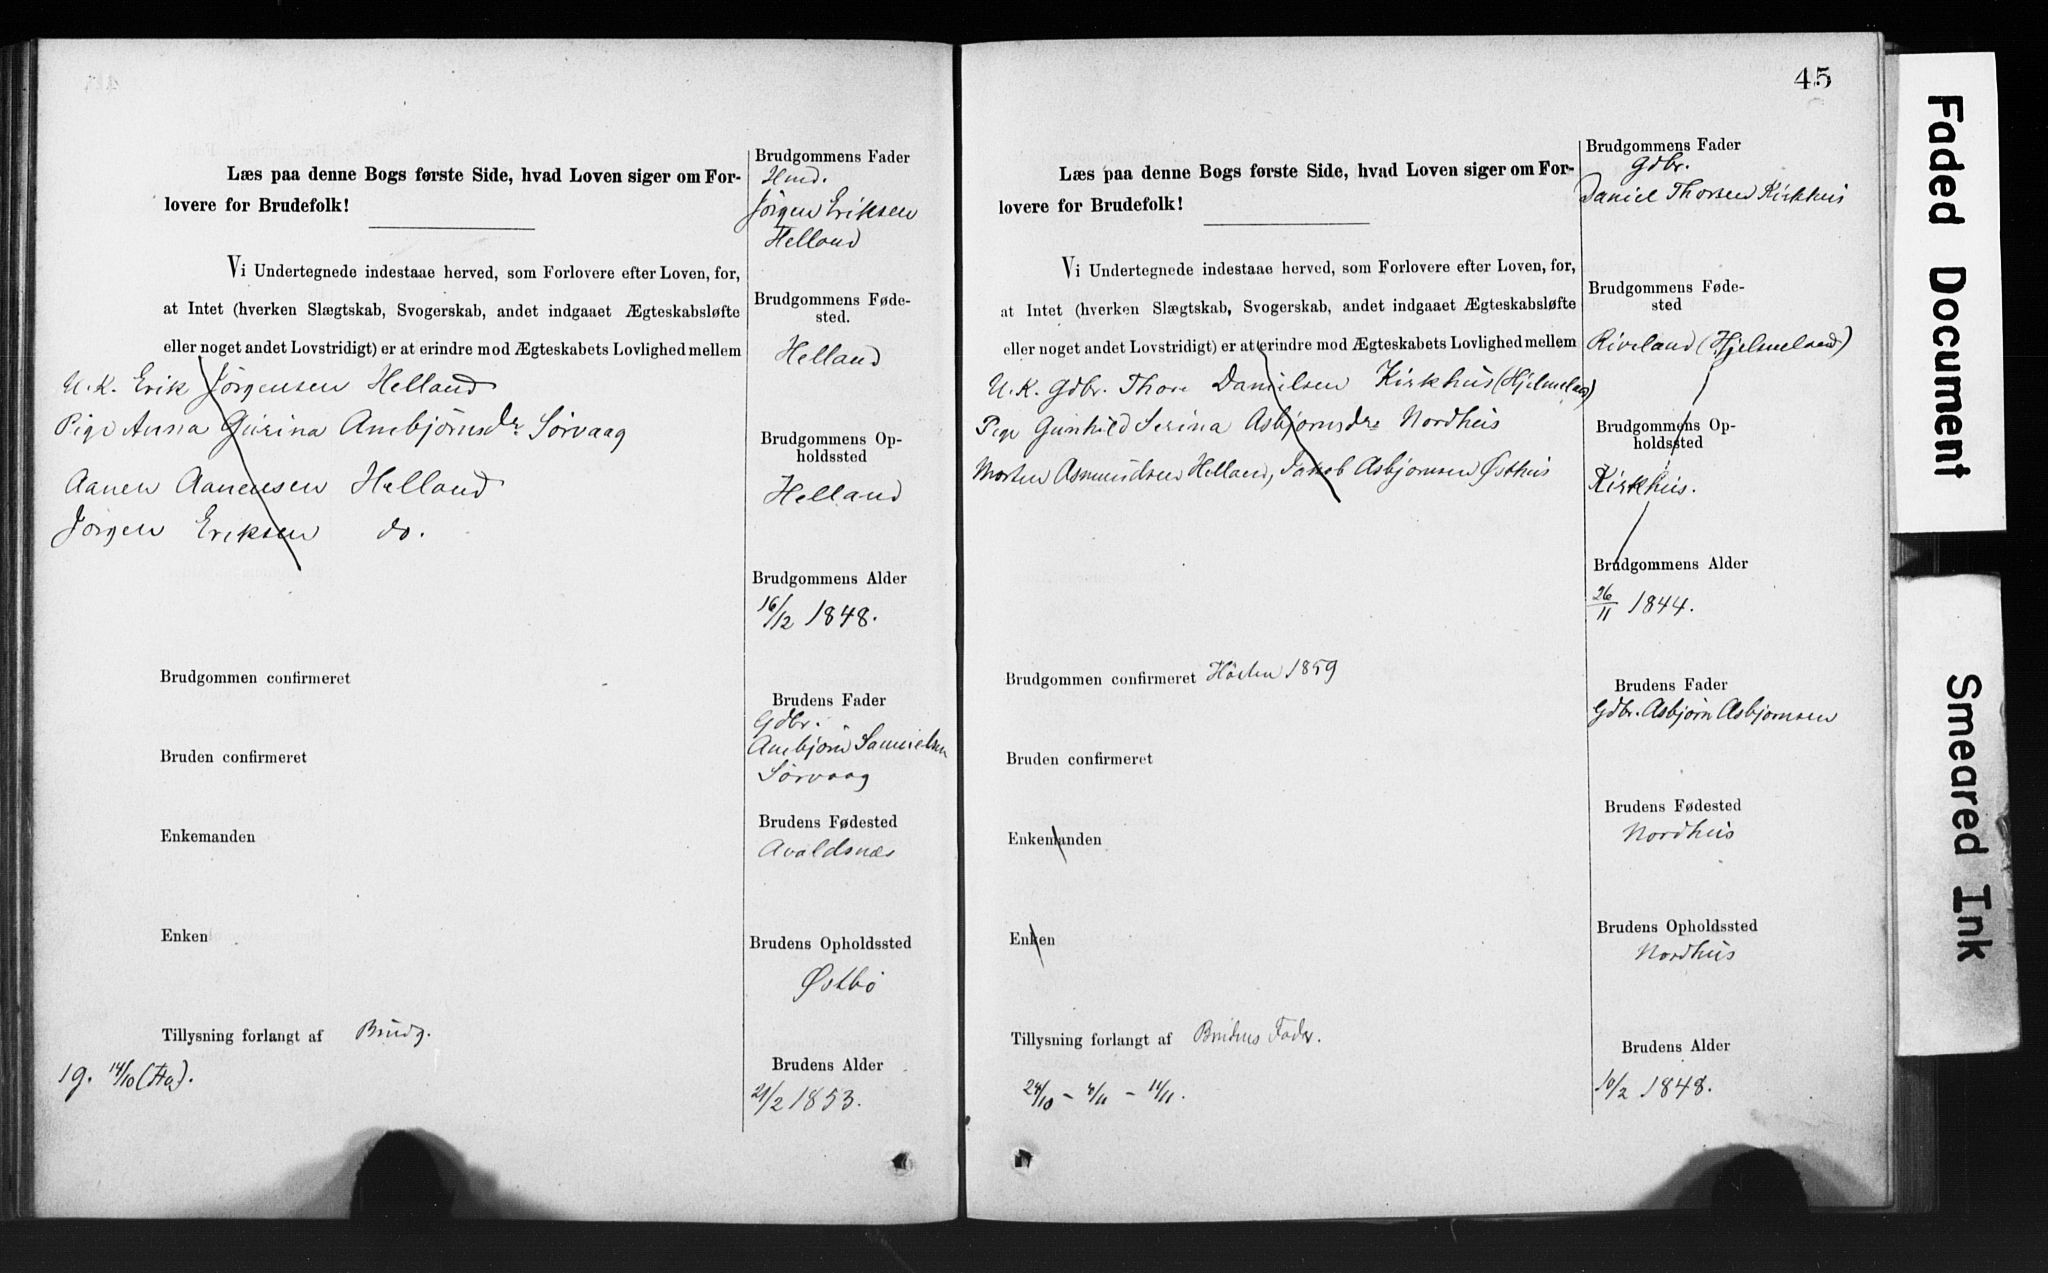 Læs paa denne Bogs første Side, hvad Loven siger om For-
lovere for Brudefolk!
Vi Undertegnede indestaae herved, som Forlovere efter Loven, for,
at Intet (hverken Slægtskab, Svogerskab, andet indgaaet Ægteskabsløfte
eller noget andet Lovstridigt) er at erindre mod Ægteskabets Lovlighed mellem
U.K. Erik Jørgensen Helland
Pige Anna Gurina Anebjørnsdr Sørvaag
Aanen Aanensen Helland
Jørgen Eriksen do.
Brudgommen confirmeret
Bruden confirmeret
Enkemanden
Enken
Tillysning forlangt af Brudg.
1g. 14/10 (Ha).
Brudgommens Fader
Hmd.
Jørgen Eriksen
Helland
Brudgommens Føde-
sted.
Helland
Brudgommens Op-
holdssted
Helland
Brudgommens Alder
16/12 1848.
Brudens Fader
Gdbr.
Anebjørn Samuelsen
Sørvaag
Brudens Fødested
Avaldsnæs
Brudens Opholdssted
Østbø
Brudens Alder
21/2 1853.
45
Læs paa denne Bogs første Side, hvad Loven siger om For-
lovere for Brudefolk!
Vi Undertegnede indestaae herved, som Forlovere efter Loven, for,
at Intet (hverken Slægtskab, Svogerskab, andet indgaaet Ægteskabsløfte
eller noget andet Lovstridigt) er at erindre mod Ægteskabets Lovlighed mellem
U.K. Gdbr. Thore Danielsen Kirkhus (Hjelmeland)
Pige Gunhild Serina Asbjørnsdr Nordhus
Morten Asmundsen Helland, Jakob Asbjørnsen Østhus
Brudgommen confirmeret Hösten 1859
Bruden confirmeret
Enkemanden
Enken
Tillysning forlangt af Brudens Fader.
24/10 - 4/11 - 11/11.
Brudgommens Fader
Gdbr.
Daniel Thorsen Kirkhus
Brudgommens Føde-
sted
Riveland (Hjelmeland)
Brudgommens Op-
holdssted
Kirkhus.
Brudgommens Alder
26/11 1844.
Brudens Fader
Gdbr. Asbjørn Asbjørnsen
Brudens Fødested
Nordhus
Brudens Opholdssted
Nordhus
Brudens Alder
10/2 1848.
Faded Document
Smeared Ink